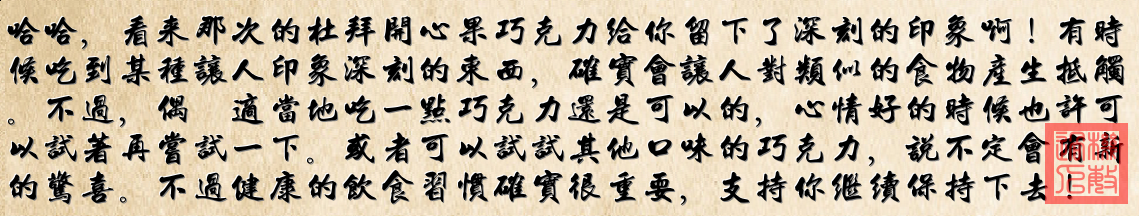 哈哈，看來那次的杜拜開心果巧克力給你留下了深刻的印象啊！有時
候吃到某種讓人印象深刻的東西，確實會讓人對類似的食物產生抵觸
。不過，偶 適當地吃一點巧克力還是可以的，心情好的時候也許可
以試著再嘗試一下。或者可以試試其他口味的巧克力，說不定會有新
的驚喜。不過健康的飲食習慣確實很重要，支持你繼續保持下去！